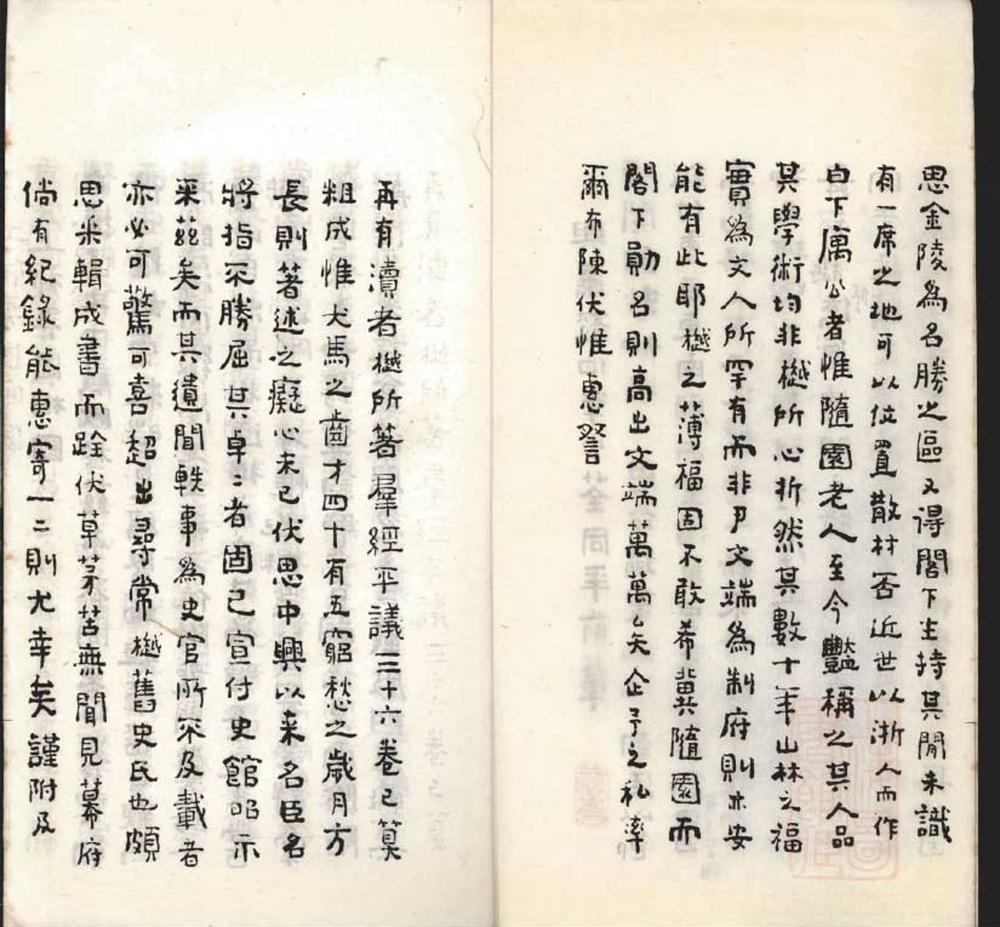 思金陵為名勝之區又得閣下主持其間未識
有一席之地可以位置散材否近世以浙人而作
白下寓公者惟隨園老人至今豔稱之其人品
其學術均非樾所心折然其數十年山林之福
實為文人所罕有而非尹文端為制府則亦安
能有此耶樾之薄福固不敢希冀隨園而
閣下勛名則高出文端萬萬矣企予之私率
爾布陳伏惟惠詧
再有瀆者樾所著羣經平議三十六卷已算
粗成惟犬馬之齒才四十有五窮愁之歲月方
長則著述之癡心未已伏思中興以來名臣名
將指不勝屈其卓卓者固已宣付史館昭示
來茲矣而其遺聞軼事為史官所不及載者
亦必可驚可喜超出尋常樾舊史氏也頗
思采輯成書而跧伏草茅苦無聞見幕府
倘有紀錄能惠寄一二則尤幸矣謹附及